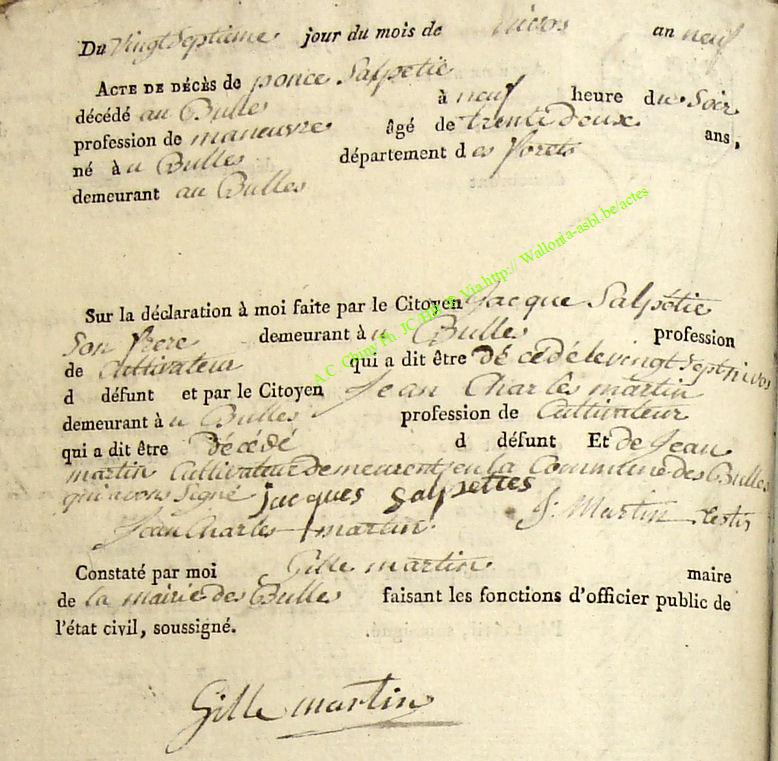 Du vingt septieme jour du mois de nivos an neuf
ACTE DE DÉCÈS de ponce Salpetie
décédé au Bulle à neuf heure du Soir
profession de maneuvre âgé de trente deux ans,
né à u Bulles département d es forets
demeurant au Bulles
Sur la déclaration à moi faite par le Citoyen Jacque Salpétie
Son frere demeurant à u Bulles profession
de Cultivateur qui a dit être dé cedé le vingt Sept nivos
d défunt et par le Citoyen Jean Charles martin
demeurant à u Bulles profession de Cultivateur
qui a dit être Décédé d défunt Et de Jean
martin Cultivateur demeurent en la Commune des Bulles
qui avons Signé jacques salpettes
Jean Charles martin J: Martin
Constaté par moi Gille martin maire
de la mairie des Bulles faisant les fonctions d'officier public de
l'état civil, soussigné.
Gille martin
Via http:// Wallonia-asbl.be/actes